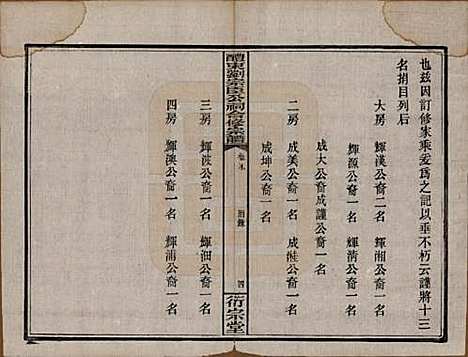 也茲因訂修家乘爰為之記以垂不朽云謹將十三
名捐目列后
大房　輝漢公裔二名　輝湘公裔一名
輝源公裔一名　輝清公裔一名
成大公裔成謹公裔一名
二房　成美公裔一名　成
成坤公裔一名
醴東劉宗臣公祠合修宗譜
卷
四
衍慶堂
三房　輝波公裔一名　輝沺公裔一名
四房　輝澳公裔一名　輝浦公裔一名